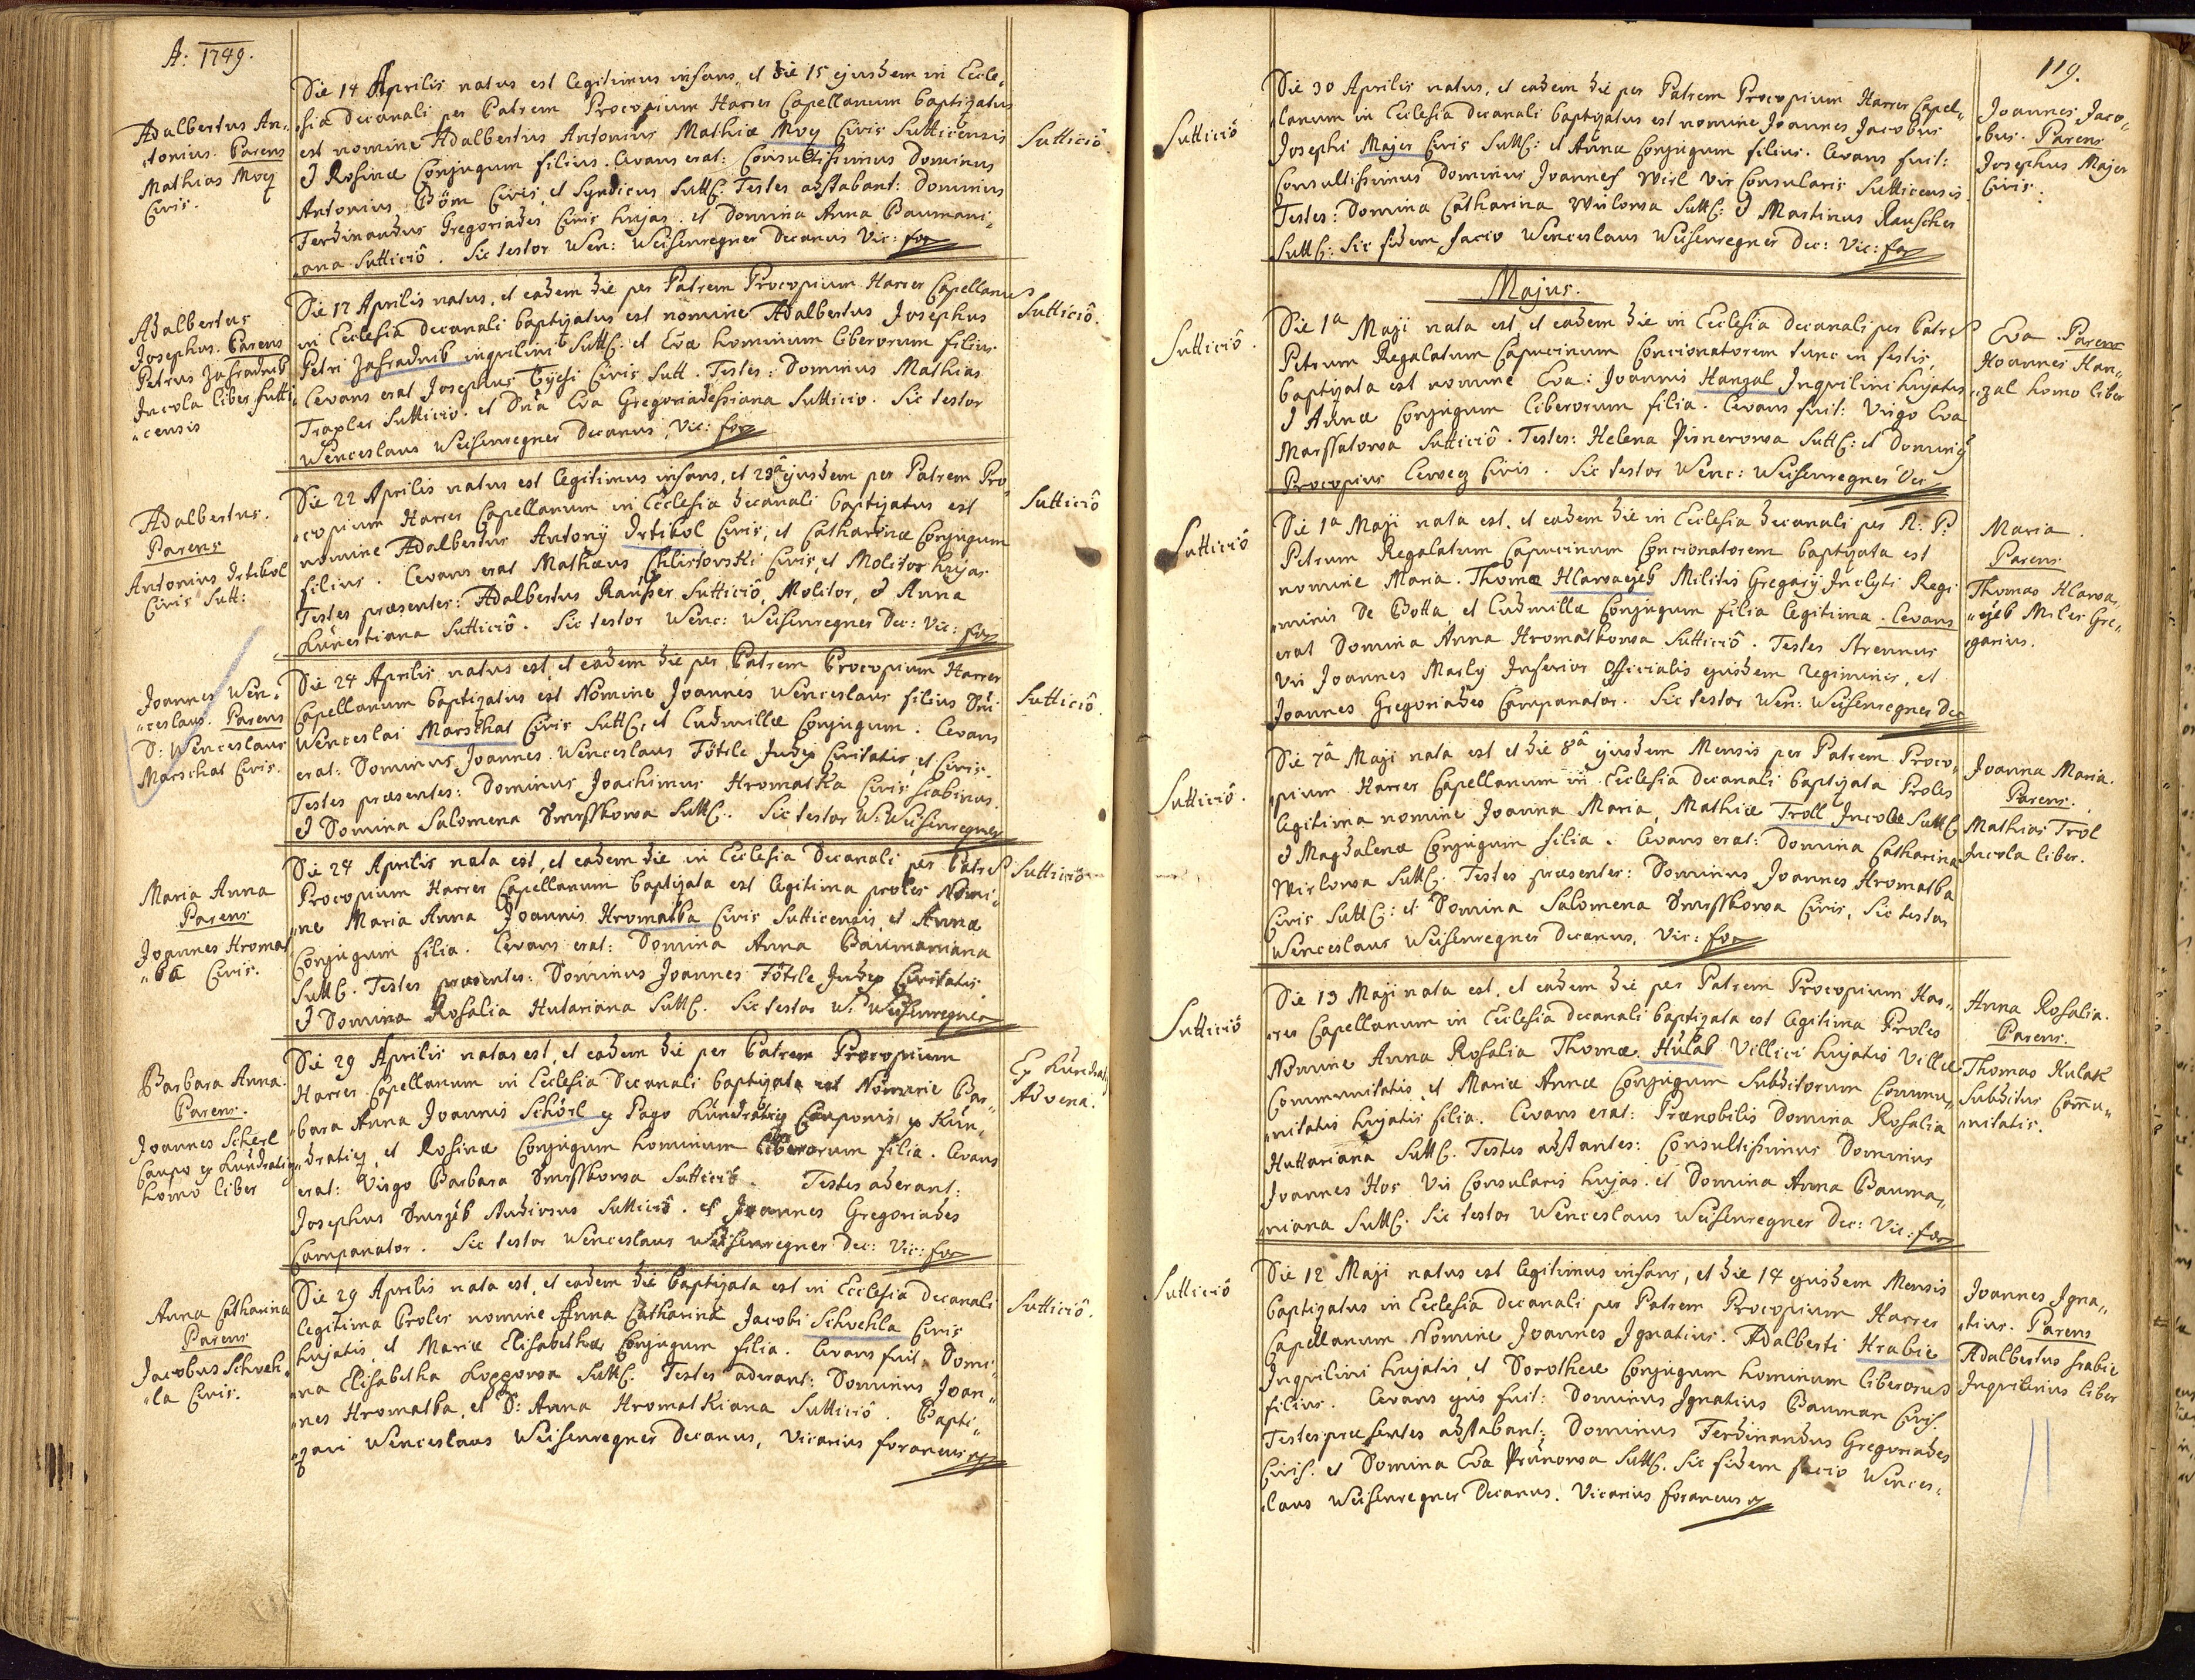 A: 1749.
Adalbertus An-
tonius. Parens
Mathias Moy
Civis.
Die 14 Aprilis natus est legitimus infans, et die 15 ejusdem in Eccle-
sia Decanali per Patrem Procopium Harrer Capellanum baptizatus
est nomine Adalbertus Antonius Mathiæ Moy Civis Sutticensis
et Rosinæ Conjugum filius. Levans erat: Consultissimus Dominus
Antonius Böm Civis, et Syndicus Sutt. Testes adstabant: Dominus
Ferdinandus Gregoriades Civis hujas. et Domina Anna Baumani-
ana Sutticiô. Sic testor Wen: Weisenregner Decanus Vic: for
Sutticiô.
Adalbertus
Josephus. Parens
Petrus Zahradnik
Incola liber Sutti-
censis
Die 17 Aprilis natus, et eadem die per Patrem Procopium Harrer Capellanum
in Ecclesia Decanali baptizatus est nomine Adalbertus Josephus
Petri Zahradnik inqvilini Sutt. et Evæ hominum liberorum filius
Levans erat Josephus Civis Sutt. Testes: Dominus Mathias
Traxler Sutticio. et Dna Eva Gregoriadessiana Sutticio. Sic testor
Wenceslaus Weisenregner Decanus, Vic: for
Sutticiô.
Adalbertus.
Parens
Antonius Drtikol
Civis Sutt:
Die 22 Aprilis natus est legitimus infans, et 23â ejusdem per Patrem Pro-
copium Harrer Capellanum in Ecclesia decanali baptizatus est
nomine Adalbertus Antonij Drtikol Civis, et Catharinæ Conjugum
filius. Levans erat Mathæus Chlistovski Civis, et Molitor hujas
Testes præsentes: Adalbertus Rauser Sutticiô, Molitor, et Anna
Kunestiana Sutticiô. Sic testor Wenc: Weisenregner Dec: Vic: for
Sutticiô
Joannes Wen-
ceslaus. Parens
D: Wenceslaus
Marschat Civis.
Die 24 Aprilis natus est, et eadem die per Patrem Procopium Harrer
Capellanum baptizatus est Nomine Joannes Wenceslaus filius Dni
Wenceslai Marschat Civis Sutt, et Ludmillæ Conjugum. Levans
erat: Dominus Joannes Wenceslaus Tötele Judex Civitatis, et Civis.
Testes præsentes: Dominus Joachimus Hromatka Civis Scabinus.
et Domina Salomena Smrsskowa Sutt. Sic testor W: Weisenregner
Sutticiô.
Maria Anna
Parens
Joannes Hromat-
ka Civis.
Die 24 Aprilis nata est, et eadem die in Ecclesia Decanali per Patrem
Procopium Harrer Capellanum baptizata est legitima proles Nomi-
ne Maria Anna Joannis Hromatka Civis Sutticensis, et Annæ
Conjugum filia. Levans erat: Domina Anna Baumaniana
Sutt. Testes præsentes: Dominus Joannes Tötele Judex Civitatis.
et Domina Rosalia Hutariana Sutt. Sic testor W: Weisenregner
Sutticiô
Barbara Anna.
Parens.
Joannes Scherl
Caupo ex Kundratiz
homo liber
Die 29 Aprilis natas est, et eadem die per Patrem Procopium
Harrer Capellanum in Ecclesia Decanali baptizata est Nomine Bar-
bara Anna Joannis Schörl ex Pago Kundratiz Cauponis ex Kun-
dratiz, et Rosinæ Conjugum hominum liberorum filia. Levans
erat: Virgo Barbara Smrsskowa Sutticiô. Testes aderant:
Josephus Smrzik Sutticiô. et Joannes Gregoriades
Campanator. Sic testor Wenceslaus Weisenregner Dec: Vic: for
Ex Kundratiz
Advena.
Anna Catharina
Parens
Jacobus Schweh-
la Civis.
Die 29 Aprilis nata est, et eadem die baptizata est in Ecclesia Decanali
legitima Proles nomine Anna Catharina Jacobi Schwehla Civis
hujatis, et Mariæ Elisabethæ Conjugum filia. Levans fuit Domi-
na Elisabetha Sutt. Testes aderant: Dominus Joan-
nes Hromatka, et D: Anna Hromatkiana Sutticiô. Bapti-
zavi Wenceslaus Weisenregner Decanus, Vicarius foraneus
Sutticiô.
119.
Sutticiô
Die 30 Aprilis natus, et eadem die per Patrem Procopium Harrer Capel-
lanum in Ecclesia decanali baptizatus est nomine Joannes Jacobus
Josephi Majer Civis Sutt: et Annæ Conjugum filius. Levans fuit:
Consultissimus Dominus Joannes Wirl Vir Consularis Sutticensis.
Testes: Domina Catharina Wirlowa Sutt: et Martinus Rauscher
Sutt: Sic fidem facio Wenceslaus Weisenregner Dec: Vic: for
Joannes Jaco-
bus. Parens
Josephus Majer
Civis.
Majus.
Sutticiô.
Die 1a Maji nata est, et eadem die in Ecclesia decanali per Patrem
Petrum Regalatum Capucinum Concionatorem tunc in festis
baptizata est nomine Eva: Joannis Hanzal Inqvilini hujatis
et Annæ Conjugum liberorum filia. Levans fuit: Virgo Eva
Marssatowa Sutticiô. Testes: Helena Pisnerowa Sutt: et Dominus
Procopius Civis. Sic testor Wenc: Weisenregner Dec
Eva. Parens
Joannes Han-
zal homo liber
Sutticiô
Die 1a Maji nata est, et eadem die in Ecclesia decanali per R: P:
Petrum Regalatum Capucinum Concionatorem baptizata est
nomine Maria. Thomæ Hlawaczek Militis Gregarij Inclyti Regi-
minis De Botta, et Ludmillæ Conjugum filia legitima. Levans
erat Domina Anna Hromatkowa Sutticiô. Testes Strenuus
Vir Joannes Marly Inferior Officialis ejusdem regiminis, et
Joannes Gregoriades Campanator. Sic testor Wen: Weisenregner Dec
Maria.
Parens
Thomas Hlawa-
czek Miles Gre-
garius.
Sutticiô.
Die 7â Maji nata est et die 8â ejusdem Mensis per Patrem Proco-
pium Harrer Capellanum in Ecclesia Decanali baptizata Proles
legitima nomine Joanna Maria, Mathiæ Troll Incolæ Sutt
et Magdalenæ Conjugum filia. Levans erat: Domina Catharina
Wirlowa Sutt. Testes præsentes: Dominus Joannes Hromatka
Civis Sutt: et Domina Salomena Smrsskowa Civis, Sic testor
Wenceslaus Weisenregner Decanus, Vic: for
Joanna Maria.
Parens.
Mathias Trol
Incola liber.
Sutticiô
Die 13 Maji nata est, et eadem die per Patrem Procopium Har-
rer Capellanum in Ecclesia Decanali baptizata est legitima Proles
Nomine Anna Rosalia Thomæ Hulak Villici hujatis Villæ
Communitatis, et Mariæ Annæ Conjugum Subditorum Commu-
nitatis hujatis filia. Levans erat: Prænobilis Domina Rosalia
Huttariana Sutt. Testes adstantes: Consultissimus Dominus
Joannes Hos Vir Consularis hujas. et Domina Anna Bauma-
niana Sutt. Sic testor Wenceslaus Weisenregner Dec: Vic: for
Anna Rosalia.
Parens.
Thomas Hulak
Subditus Commu-
nitatis.
Sutticiô
Die 12 Maji natus est legitimus infans, et die 14 ejusdem Mensis
baptizatus in Ecclesia decanali per Patrem Procopium Harrer
Capellanum Nomine Joannes Ignatius. Adalberti Hrabie
Inqvilini hujatis, et Dorotheæ Conjugum hominum liberorum
filius. Levans ejus fuit: Dominus Ignatius Bauman Civis.
Testes præsentes adstabant: Dominus Ferdinandus Gregoriades
Civis. et Domina Eva Prunowa Sutt. Sic fidem facio Wences-
laus Weisenregner Decanus. Vicarius foraneus
Joannes Igna-
tius. Parens
Adalbertus hrabie
Inqvilinus liber